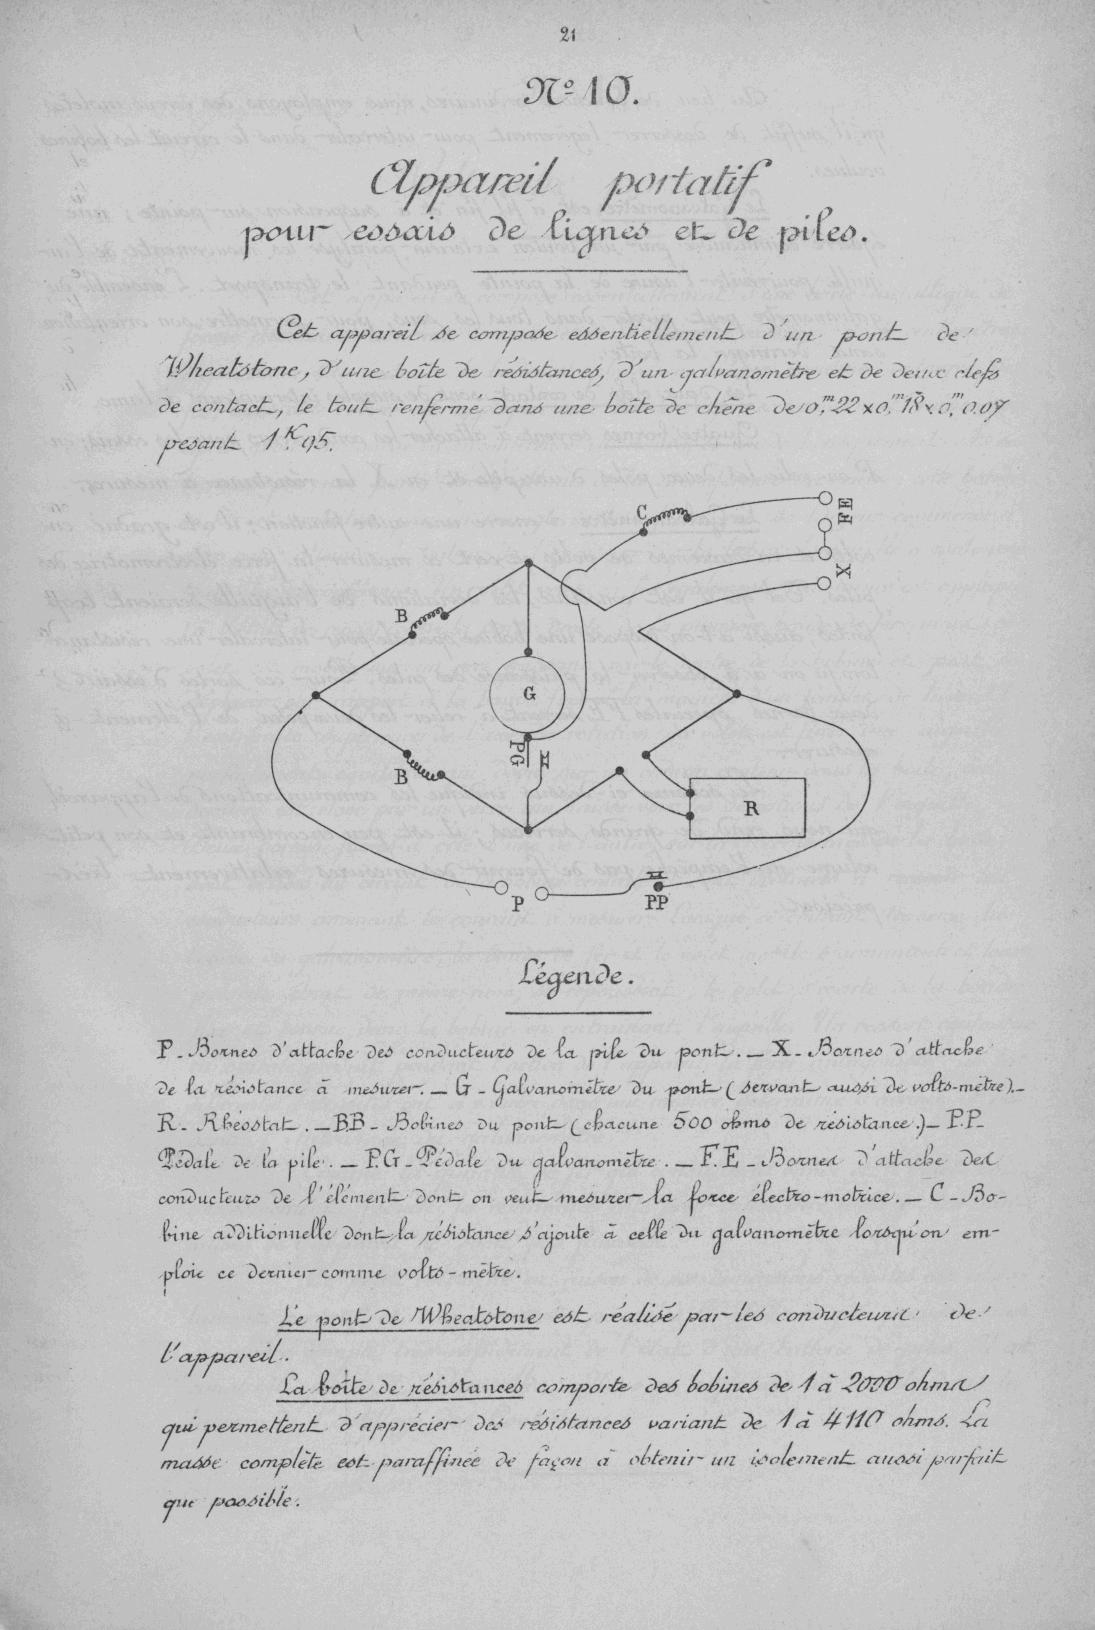 21
Nº 10.
Appareil portatif
pour essais de lignes et de piles.
Cet appareil se compose essentiellement d'un pont de
Wheatstone, d'une boîte de résistances, d'un galvanomètre et de deux clefs
de contact, le tout renfermé dans une boîte de chêne de 0,ᵐ22 x 0,ᵐ18 x 0,ᵐ0.07
pesant 1ᴷ.95.
C
FE
X
B
G
PG
B
R
P
PP
Légende.
P - Bornes d'attache des conducteurs de la pile du pont. — X - Bornes d'attache
de la résistance à mesurer. — G - Galvanomètre du pont (servant aussi de volts-mètre). —
R - Rhéostat. — B.B - Bobines du pont (chacune 500 ohms de résistance.) — P.P -
Pédale de la pile. — P.G - Pédale du galvanomètre. — F.E - Bornes d'attache des
conducteurs de l'élément dont on veut mesurer la force électro-motrice. — C - Bo-
bine additionnelle dont la résistance s'ajoute à celle du galvanomètre lorsqu'on em-
ploie ce dernier comme volts-mètre.
Le pont de Wheatstone est réalisé par les conducteurs de
l'appareil.
La boîte de résistances comporte des bobines de 1 à 2000 ohms
qui permettent d'apprécier des résistances variant de 1 à 4110 ohms. La
masse complète est paraffinée de façon à obtenir un isolement aussi parfait
que possible.